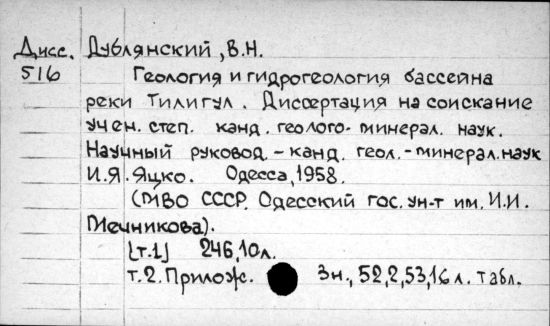 Дисс. Дублянский, В.Н.
516 Геология и гидрогеология бассейна
реки Тилигул. Диссертация на соискание
учен. степ. канд. геолого-минерал. наук.
Научный руковод. - канд. геол.-минерал. наук
И.Я. Яцко. Одесса, 1958.
(МВО СССР. Одесский гос. ун-т им. И.И.
Мечникова).
[т.1] 246, 10 л.
т.2. Прилож. 3 н., 52, 2, 53, 16 л. табл.